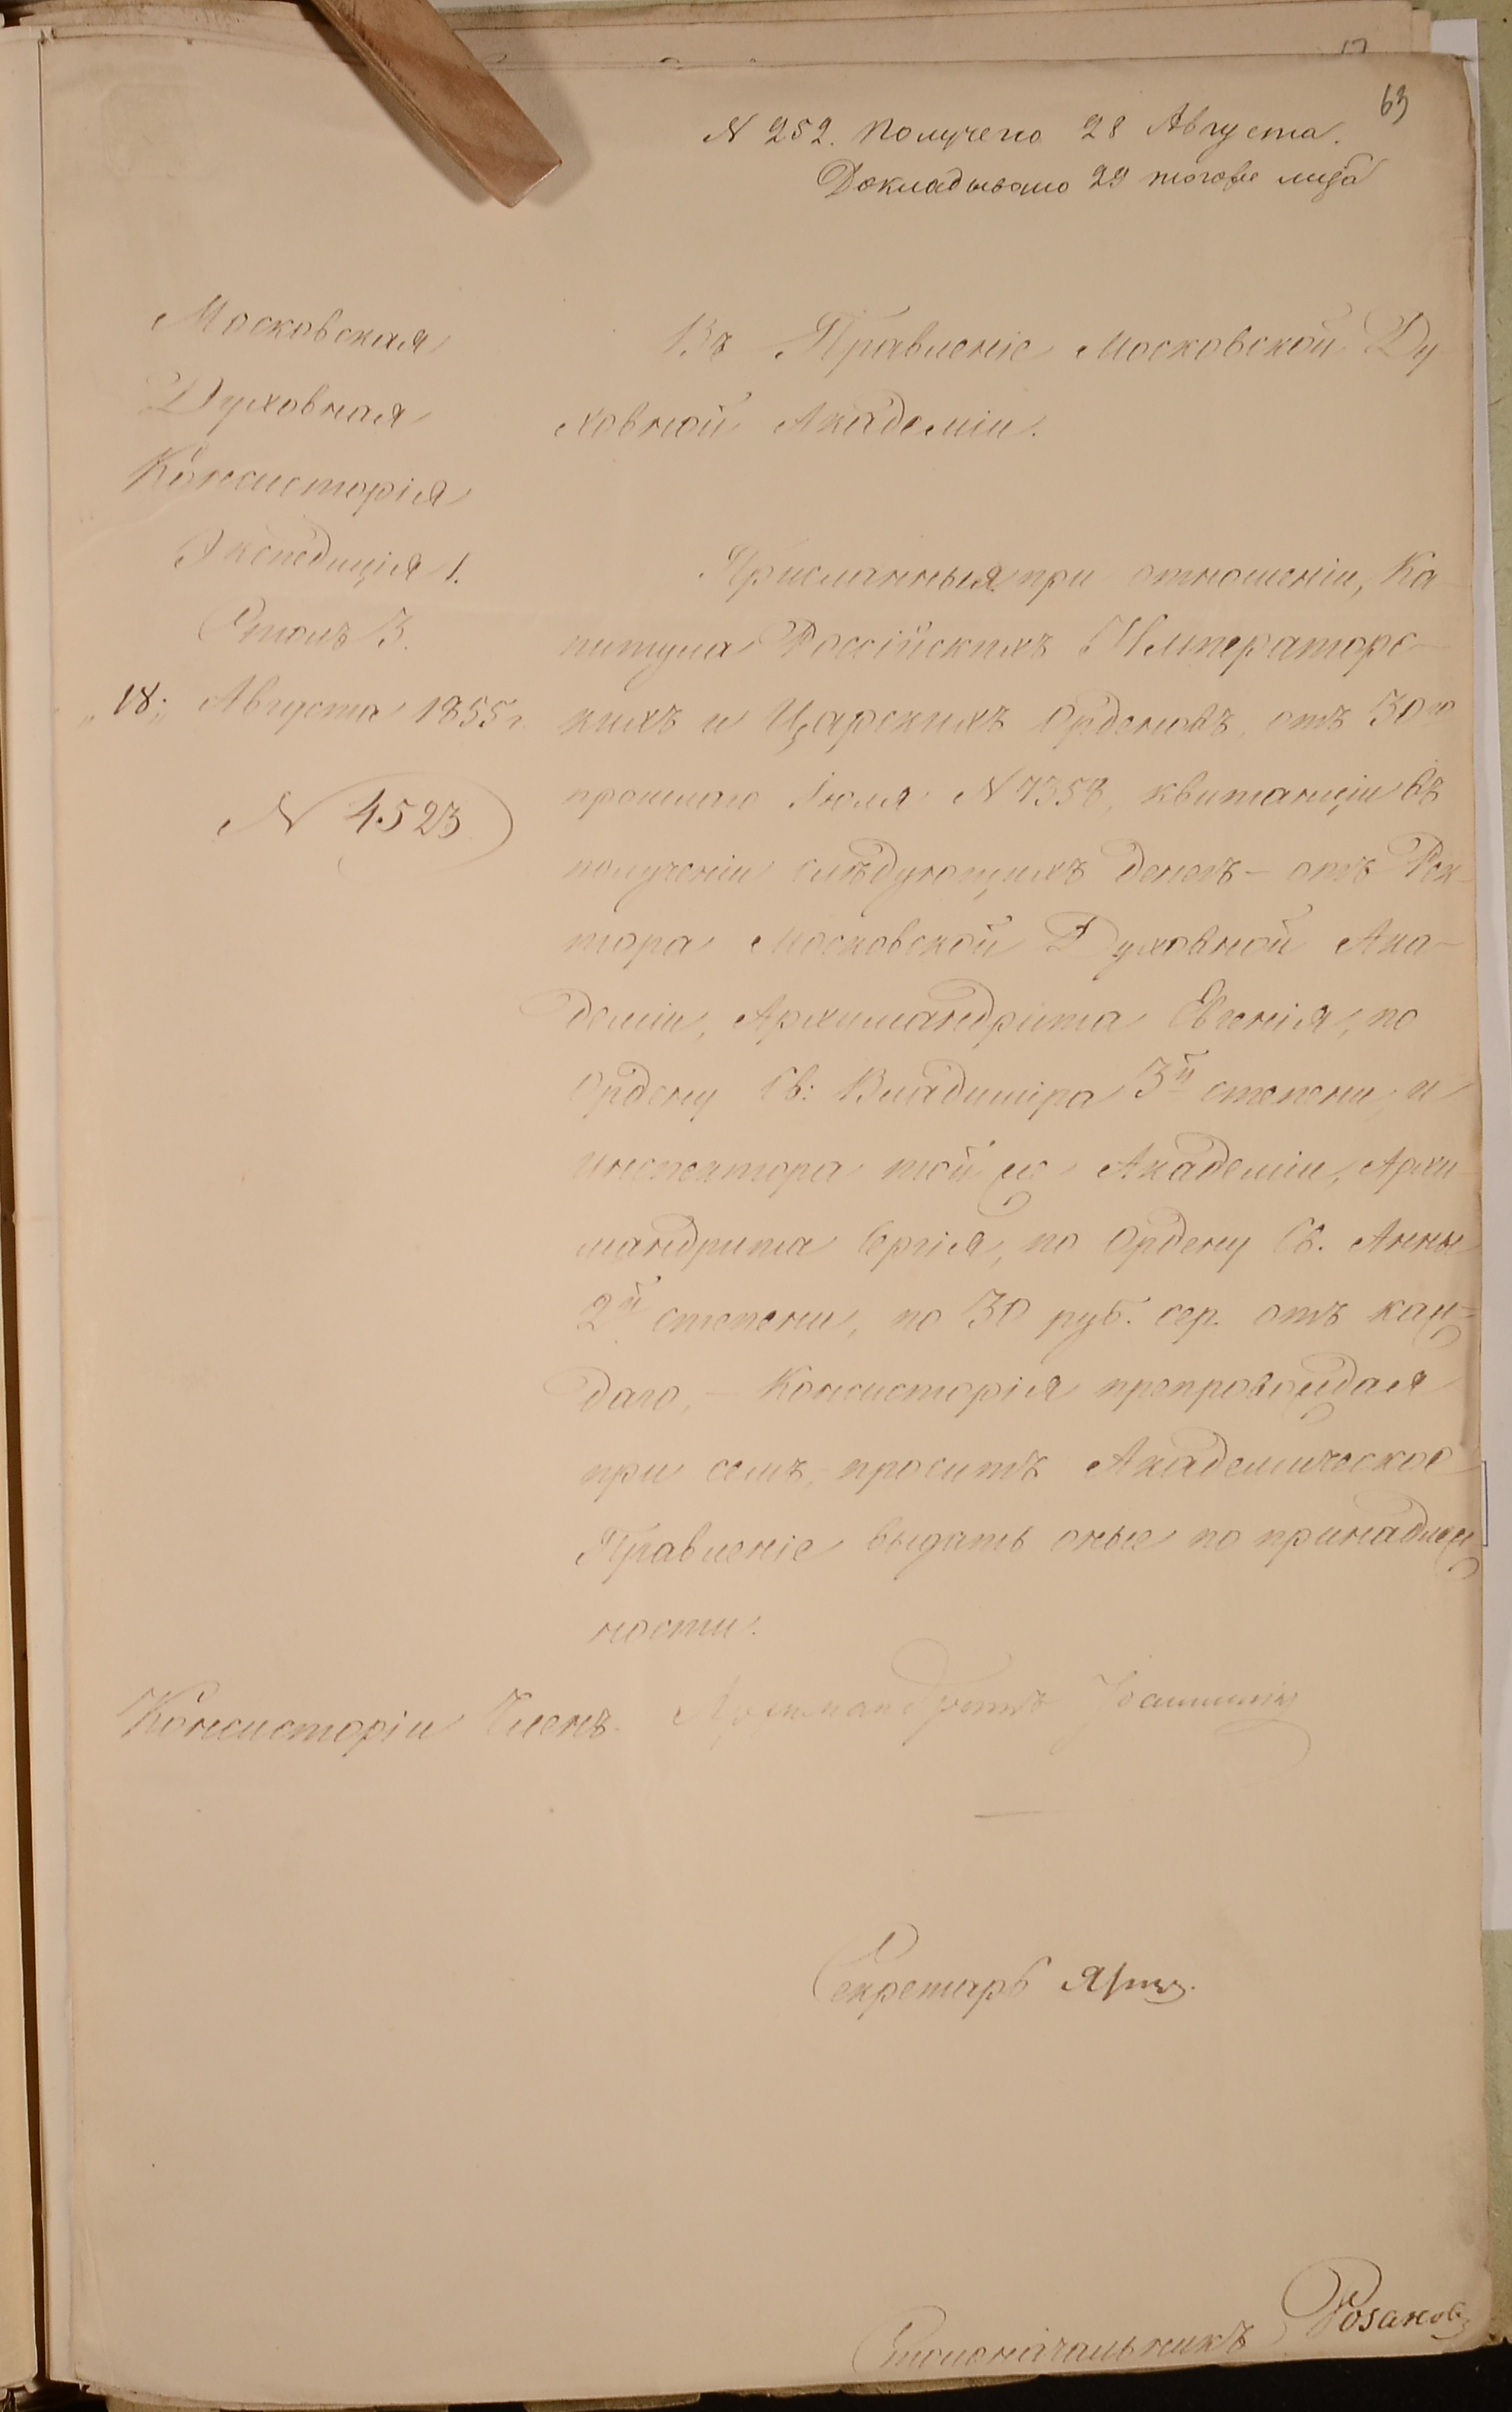 63
N 252. Получено 28 Августа.
Докладывано 29 тогоже
Московская
Духовная
Консисторія
Экспедиція 1.
Столъ 3.
„18„ Августа 1855 г
N 4523
Въ Правленіе Московской Ду
ховной Академіи.
Присланныя при отношеніи, Ка
питула Россійскихъ Императорс-
кихъ и Царскихъ Орденовъ, отъ 30го
прошлаго Іюля N 7358, квитанціи въ
полученіи слѣдующихъ денегъ - отъ Рек-
тора Московской Духовной Ака-
деміи, Архимандрита Евгенія, по
Ордену Св: Владиміра 3й степени, и
инспектора той же Академіи, Архи
мандрита Сергія, по Ордену Св. Анны
2й степени, по 30 руб. сер. отъ каж-
даго, - Консисторія препровождая
при семъ, проситъ Академическое
Правленіе выдать оные по принадлеж
ности.
Консисторіи Членъ Архимандритъ
Секретарь
Столоначальникъ Розановъ